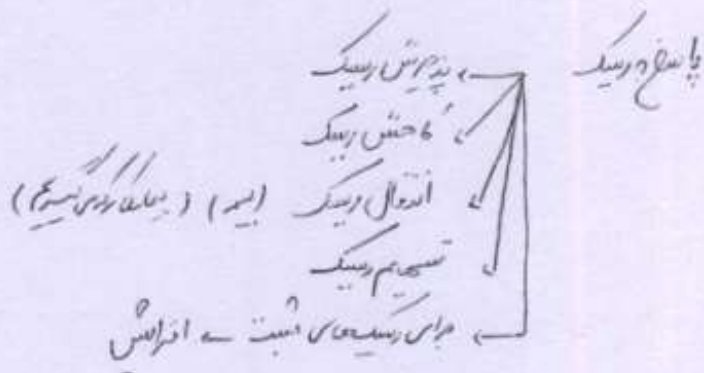 پاسخ ریسک
پذیرش ریسک
کاهش ریسک
انتقال ریسک (بیمه)
تسهیم ریسک
برای ریسک‌های مثبت ← افزایش